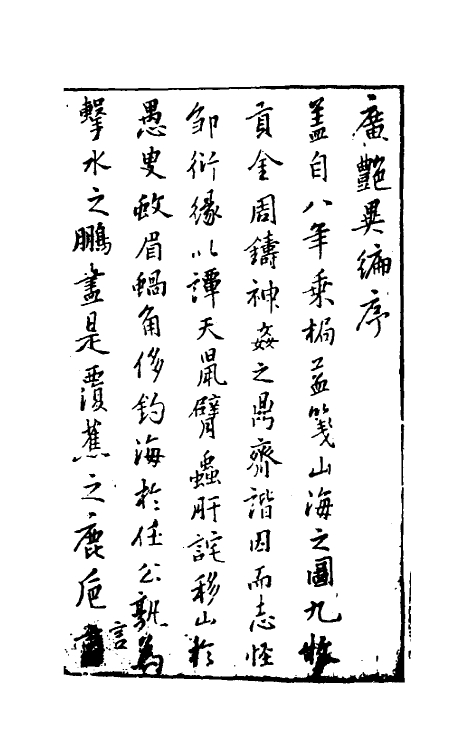 廣艷異編序
蓋自八年乗梮益箋山海之圖九牧
貢金周鑄神姦之鼎齊諧因而志怪
鄒衍緣以譚天鼠臂蟲肝詫移山於
愚叟蚊眉蝸角侈釣海於任公孰為
擊水之鵬盡是覆蕉之鹿巵言